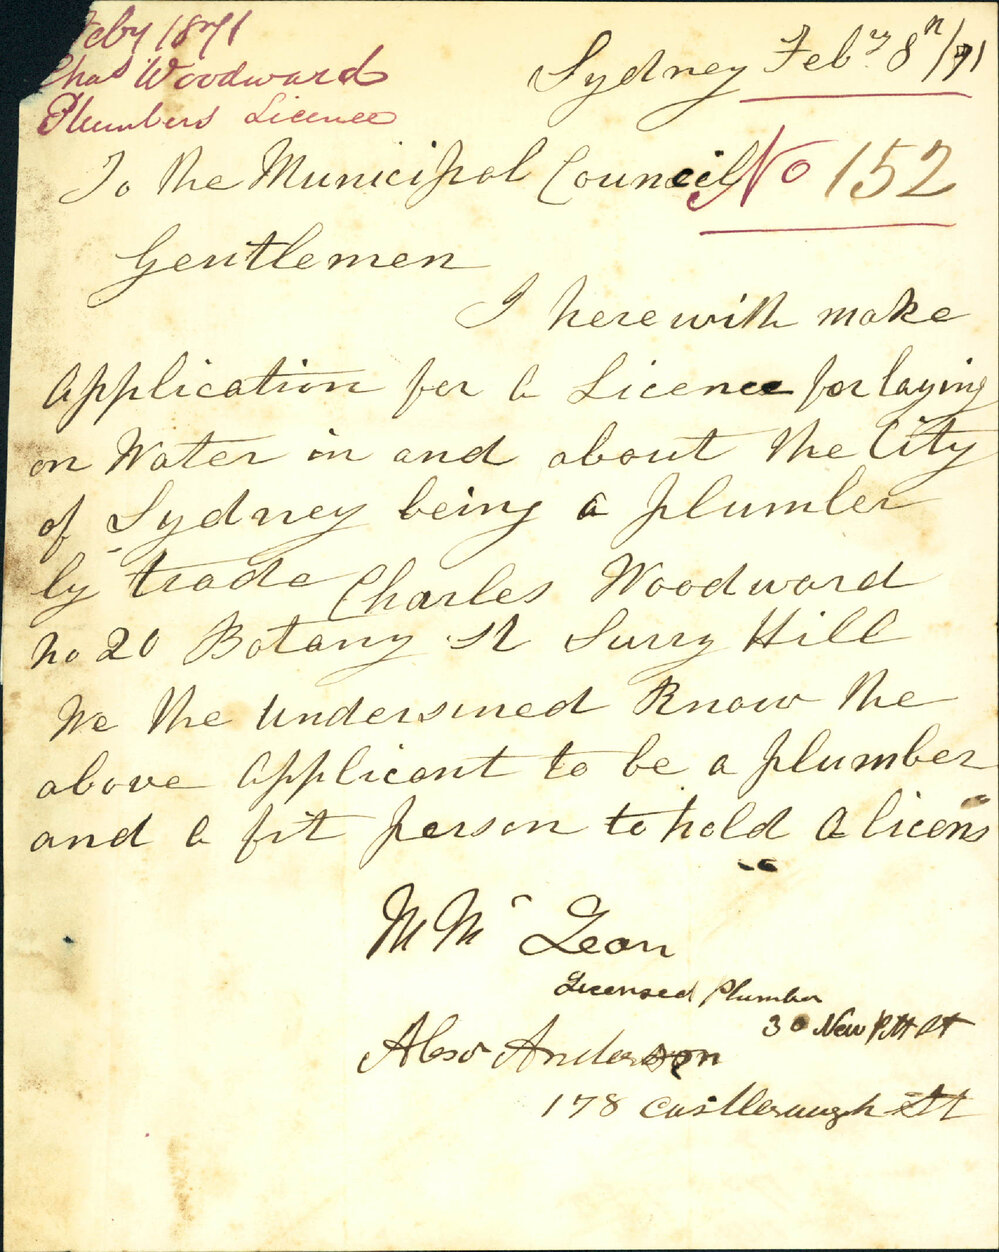 Feby 1871
Chas Woodward
Plumbers Licence
Sydney Feby 8th/71
To the Municipal Council
No 152
Gentlemen
I herewith make
application for a Licence for laying
on Water in and about the City
of Sydney being a plumber
by trade Charles Woodward
No 20 Botany St Surry Hill
We the undersined Know the
above applicant to be a plumber
and a fit person to hold a licens
M Mc Lean
Licensed Plumber
30 New Pitt St
Alexr Anderson
178 Castleraugh St